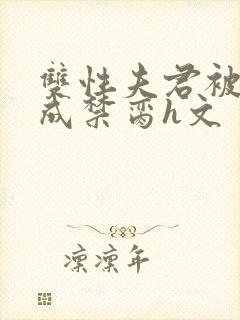 雙性夫君被
成禁脔h文
凛凛年